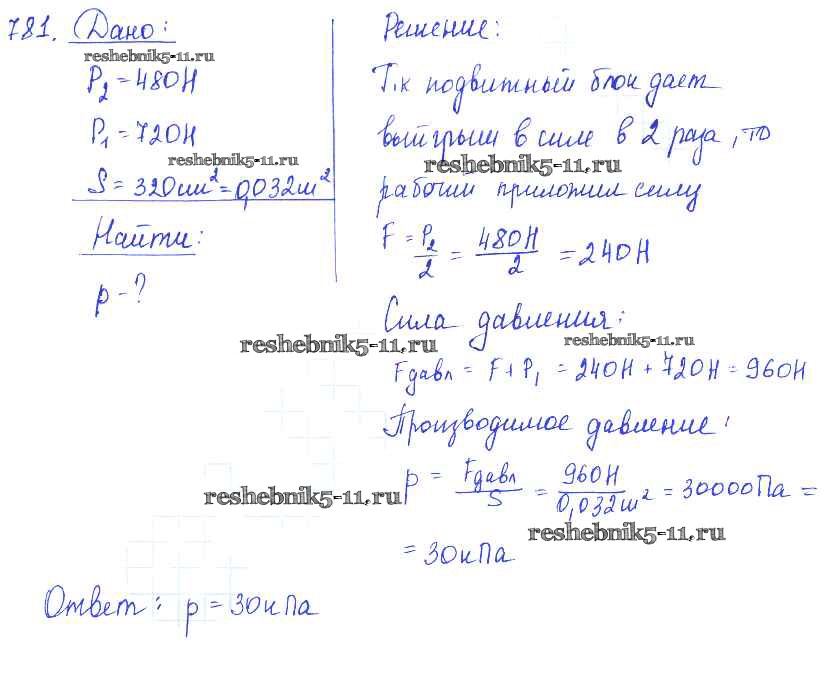 781. Дано:
reshebnik5-11.ru
P₂ = 480Н
P₁ = 720Н
reshebnik5-11.ru
S = 320см² = 0,032м²
Найти:
p - ?
Решение:
Т.к подвижный блок дает
выигрыш в силе в 2 раза, то
reshebnik5-11.ru
рабочий приложил силу
F = P₂/2 = 480Н/2 = 240Н
Сила давления:
reshebnik5-11.ru
reshebnik5-11.ru
Fдавл = F + P₁ = 240Н + 720Н = 960Н
Производимое давление:
p = Fдавл/S = 960Н/0,032м² = 30000Па =
reshebnik5-11.ru
reshebnik5-11.ru
= 30кПа
Ответ: p = 30кПа